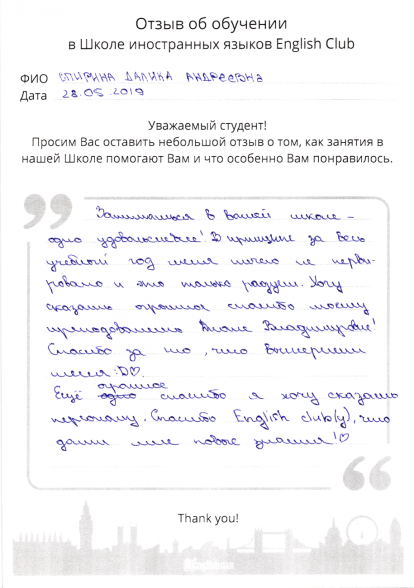 Отзыв об обучении
в Школе иностранных языков English Club
ФИО СПИРИНА ДАЛИКА АНДРЕЕВНА
Дата 28.05.2019
Уважаемый студент!
Просим Вас оставить небольшой отзыв о том, как занятия в
нашей Школе помогают Вам и что особенно Вам понравилось.
Заниматься в вашей школе –
одно удовольствие! В принципе за весь
учебный год меня ничего не нерви-
ровало и это только радует. Хочу
сказать огромное спасибо моему
преподавателю Владимировне!
Спасибо за то, что вытерпели
меня :D♡.
Ещё огромное спасибо я хочу сказать
персоналу. Спасибо English club(у), что
дали мне новые знания!♡
Thank you!